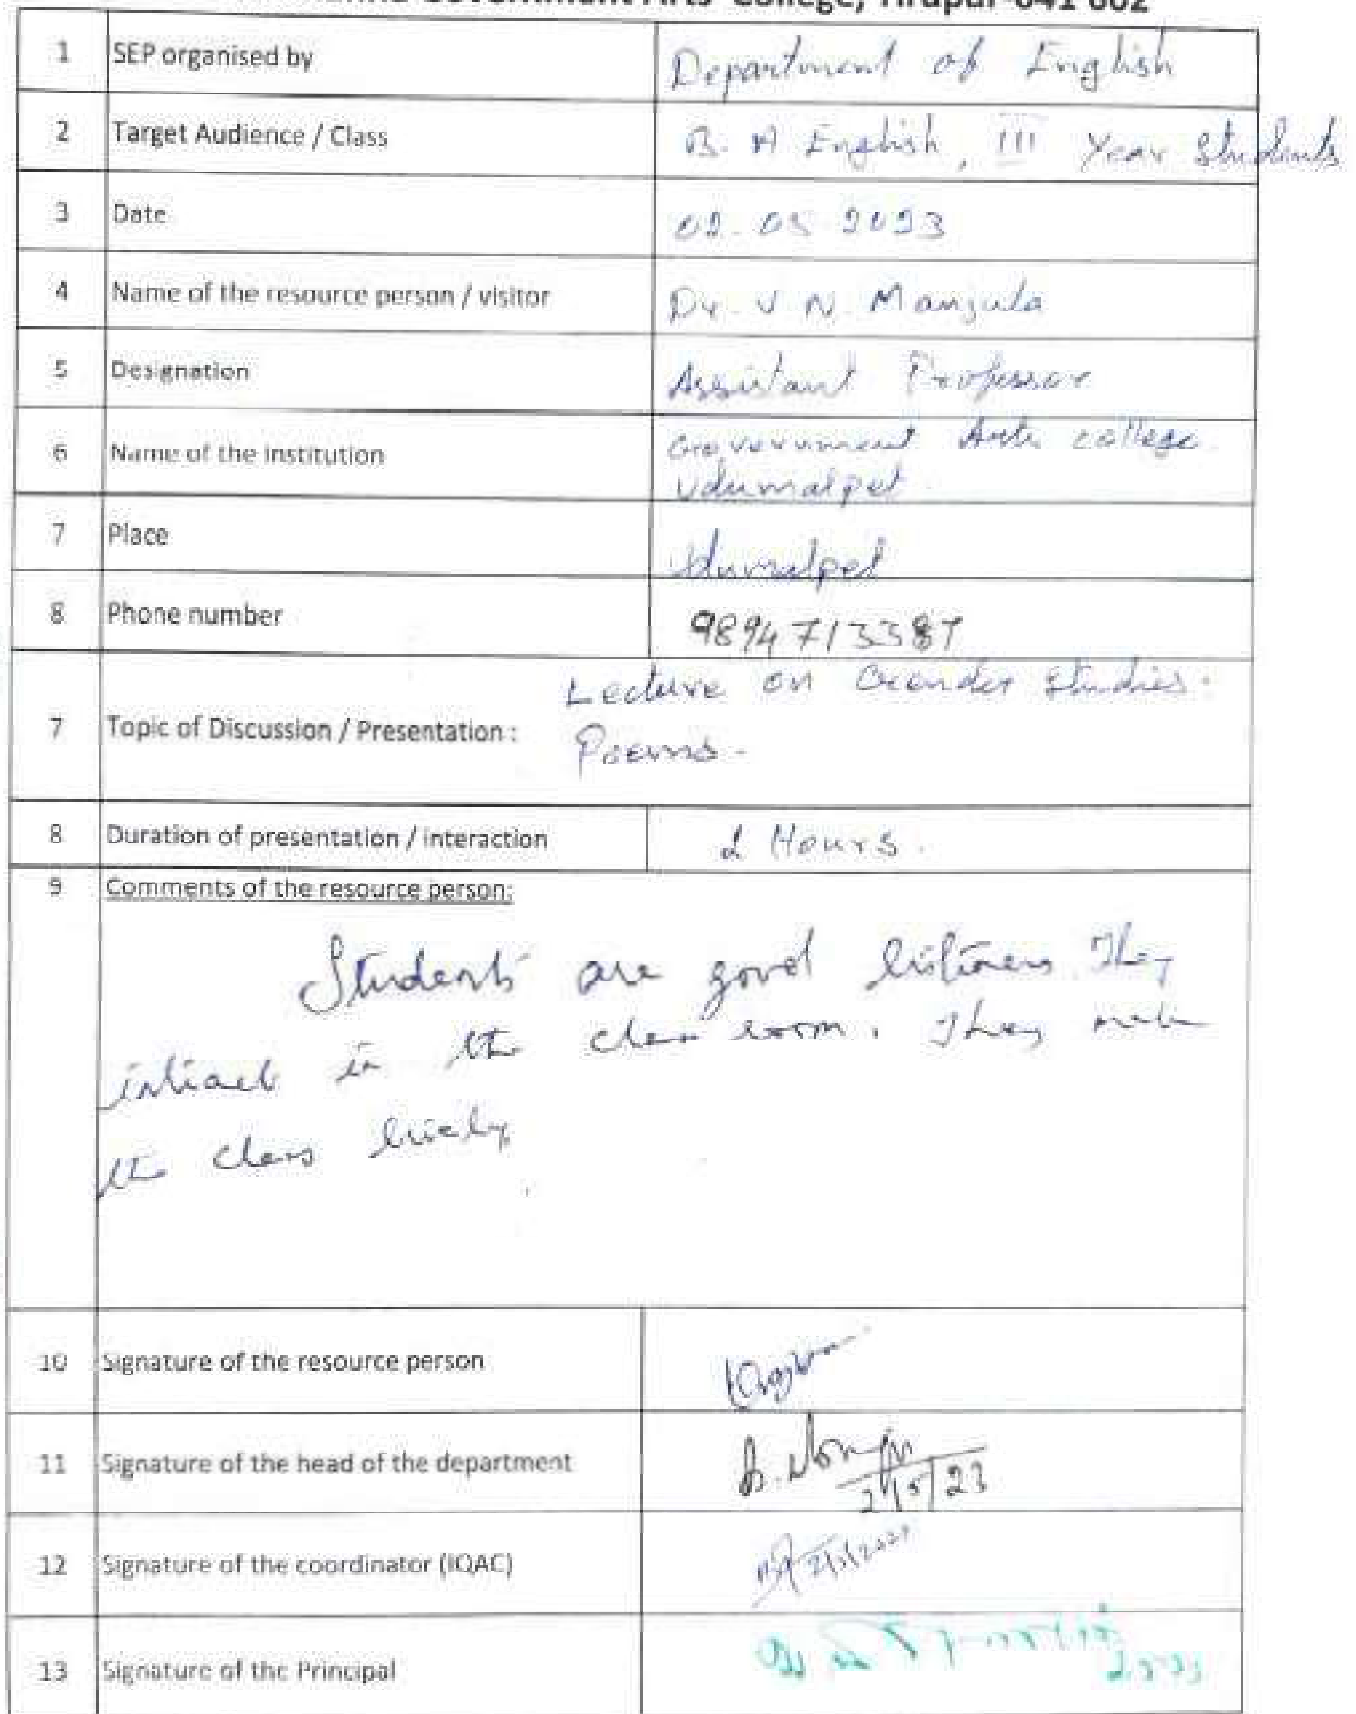 Government Arts College, Tirupur-641 602
1 SEP organised by Department of English
2 Target Audience / Class B. A English, III Year Students
3 Date 02.05 2023
4 Name of the resource person / visitor Dr. V. N. Manjula
5 Designation Assistant Professor
6 Name of the institution Government Arts college
Udumalpet
7 Place Udumalpet
8 Phone number 9894713387
Lecture on Gender Studies.
7 Topic of Discussion / Presentation :
Poems.
8 Duration of presentation / interaction 2 Hours.
9 Comments of the resource person:
Students are good listeners. They
interact in the class room. They make
the class lively
10 Signature of the resource person
11 Signature of the head of the department
2/5/23
12 Signature of the coordinator (IQAC)
13 Signature of the Principal